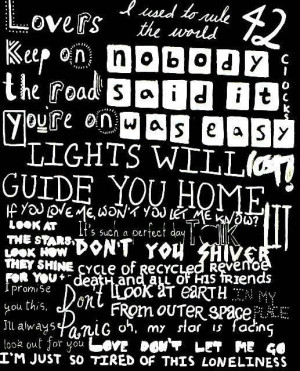 Lovers
I used to rule
the world
42
Keep on
nobody
CLOCKS
the road
said it
You're on
was easy
LIGHTS WILL
GUIDE YOU HOME
IF YOU LOVE ME, WON'T YOU LET ME KNOW?
LOOK AT
THE STARS
LOOK HOW
THEY SHINE
FOR YOU
It's such a perfect day
TALK
DON'T YOU SHIVER
cycle of recycled revenge
death and all of his friends
I promise
you this,
I'll always
look out for you
Don't
Panic
LOOK AT EARTH
FROM outer space
IN MY
PLACE
oh, my star is fading
LOVE DON'T LET ME GO
I'M JUST SO TIRED OF THIS LONELINESS